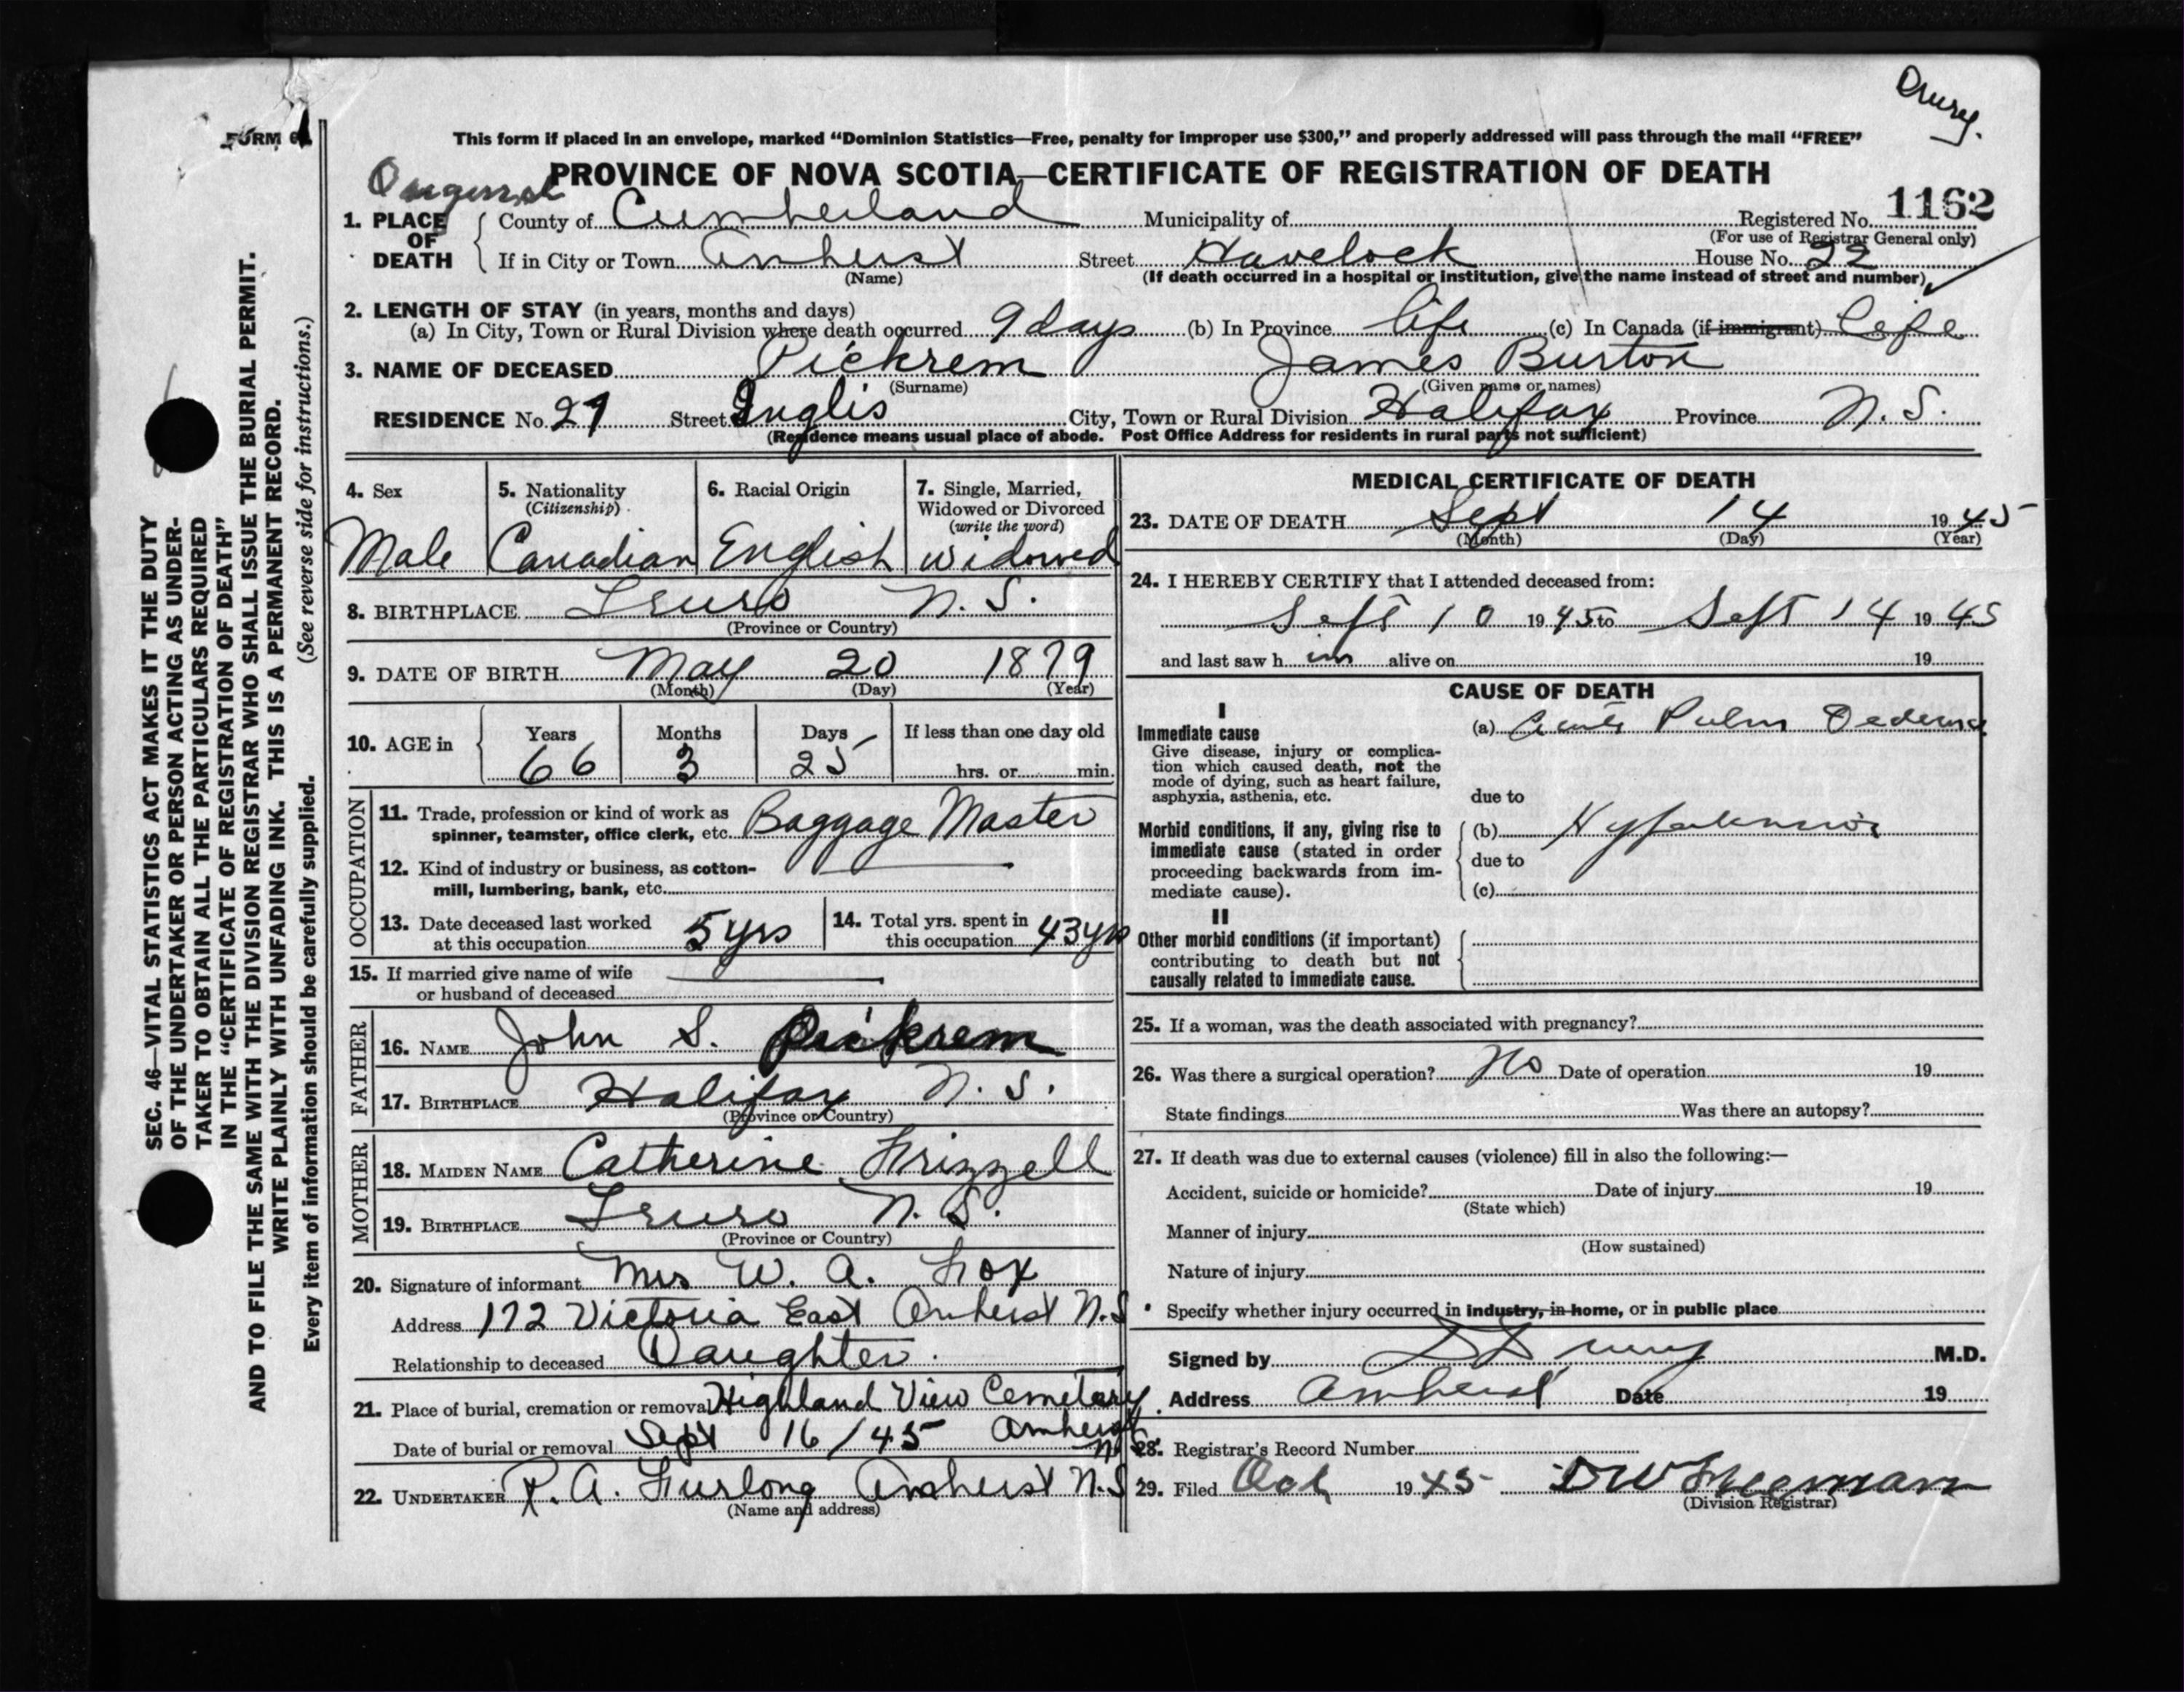 Drury.
FORM 6
This form if placed in an envelope, marked “Dominion Statistics—Free, penalty for improper use $300,” and properly addressed will pass through the mail “FREE”
PROVINCE OF NOVA SCOTIA—CERTIFICATE OF REGISTRATION OF DEATH
1162
1. PLACE OF DEATH
County of Cumberland Municipality of Registered No.
(For use of Registrar General only)
If in City or Town Amherst Street Havelock House No. 22
(Name) (If death occurred in a hospital or institution, give the name instead of street and number)
2. LENGTH OF STAY (in years, months and days)
(a) In City, Town or Rural Division where death occurred 9 days (b) In Province life (c) In Canada (if immigrant) Life
3. NAME OF DECEASED Pickrem James Burton
(Surname) (Given name or names)
RESIDENCE No. 27 Street Inglis City, Town or Rural Division Halifax Province N.S.
(Residence means usual place of abode. Post Office Address for residents in rural parts not sufficient)
4. Sex
Male
5. Nationality
(Citizenship)
Canadian
6. Racial Origin
English
7. Single, Married,
Widowed or Divorced
(write the word)
Widowed
8. BIRTHPLACE Truro N.S.
(Province or Country)
9. DATE OF BIRTH May 20 1879
(Month) (Day) (Year)
10. AGE in
Years Months Days If less than one day old
66 3 25 hrs. or min.
OCCUPATION
11. Trade, profession or kind of work as
spinner, teamster, office clerk, etc. Baggage Master
12. Kind of industry or business, as cotton-
mill, lumbering, bank, etc.
13. Date deceased last worked
at this occupation 5 yrs
14. Total yrs. spent in
this occupation 43 yrs
15. If married give name of wife
or husband of deceased
FATHER
16. NAME John S. Pickrem
17. BIRTHPLACE Halifax N.S.
(Province or Country)
MOTHER
18. MAIDEN NAME Catherine Frizzell
19. BIRTHPLACE Truro N.S.
(Province or Country)
20. Signature of informant Mrs W. A. Fox
Address 172 Victoria East Amherst N.S
Relationship to deceased Daughter.
21. Place of burial, cremation or removal Highland View Cemetery
Amherst
Date of burial or removal Sept 16/45 N.S.
22. UNDERTAKER R. A. Furlong Amherst N.S
(Name and address)
MEDICAL CERTIFICATE OF DEATH
23. DATE OF DEATH Sept 14 1945
(Month) (Day) (Year)
24. I HEREBY CERTIFY that I attended deceased from:
Sept 10 1945 to Sept 14 1945
and last saw h im alive on 19
CAUSE OF DEATH
I
Immediate cause
Give disease, injury or complica-
tion which caused death, not the
mode of dying, such as heart failure,
asphyxia, asthenia, etc.
(a) Acute Pulm Oedema
due to
Morbid conditions, if any, giving rise to
immediate cause (stated in order
proceeding backwards from im-
mediate cause).
(b) Hypertension
due to
(c)
II
Other morbid conditions (if important)
contributing to death but not
causally related to immediate cause.
25. If a woman, was the death associated with pregnancy?
26. Was there a surgical operation? No Date of operation 19
State findings Was there an autopsy?
27. If death was due to external causes (violence) fill in also the following:—
Accident, suicide or homicide? Date of injury 19
(State which)
Manner of injury
(How sustained)
Nature of injury
Specify whether injury occurred in industry, in home, or in public place
Signed by Drury M.D.
Address Amherst Date 19
28. Registrar's Record Number
29. Filed Oct 1945
(Division Registrar)
SEC. 46—VITAL STATISTICS ACT MAKES IT THE DUTY
OF THE UNDERTAKER OR PERSON ACTING AS UNDER-
TAKER TO OBTAIN ALL THE PARTICULARS REQUIRED
IN THE “CERTIFICATE OF REGISTRATION OF DEATH”
AND TO FILE THE SAME WITH THE DIVISION REGISTRAR WHO SHALL ISSUE THE BURIAL PERMIT.
WRITE PLAINLY WITH UNFADING INK. THIS IS A PERMANENT RECORD.
Every item of information should be carefully supplied. (See reverse side for instructions.)